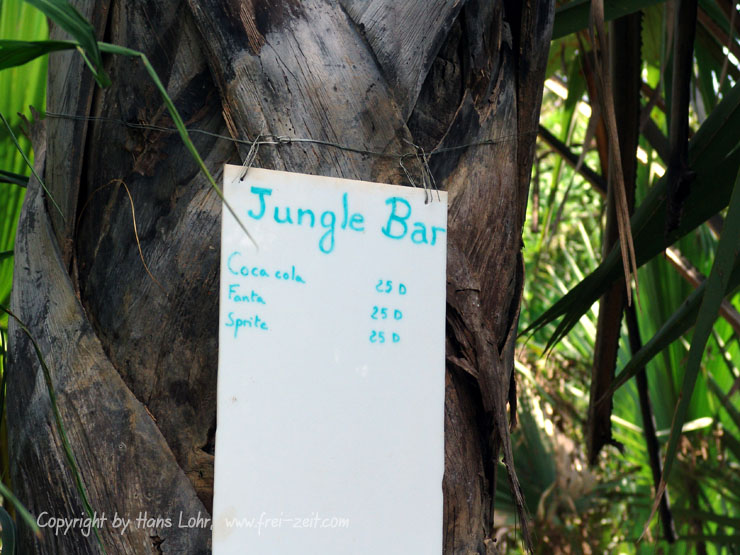 Jungle Bar
Coca cola 25 D
Fanta 25 D
Sprite 25 D
Copyright by Hans Lohr, www.frei-zeit.com